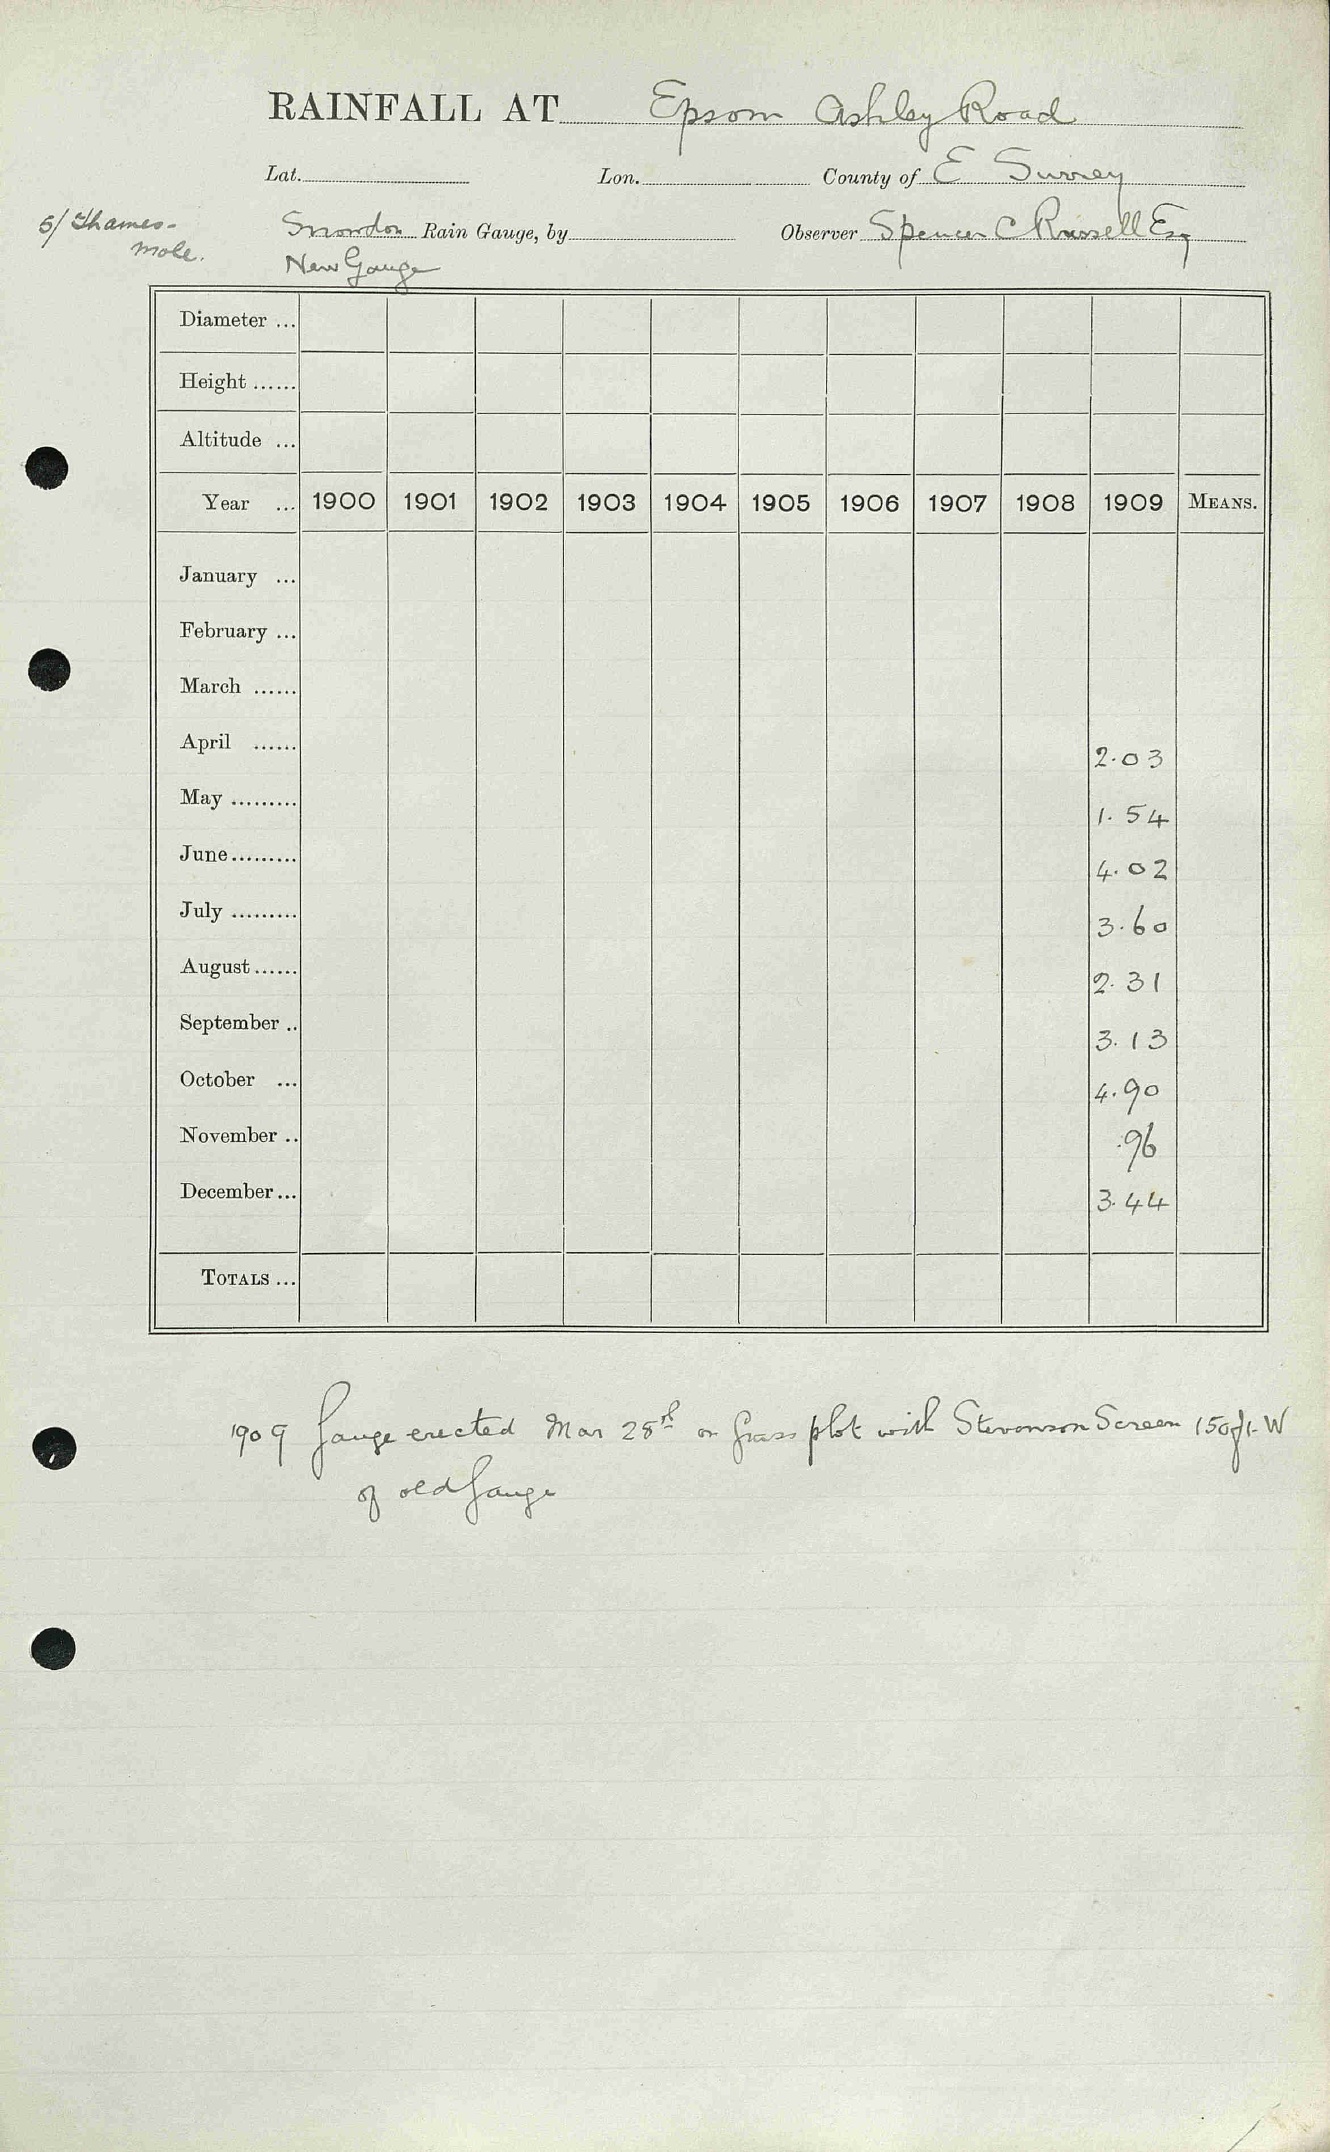 RAINFALL AT Epsom Ashley Road
Lat. Lon. County of E Surrey
5/ Thames-
Mole.
Snowdon Rain Gauge, by Observer Spencer C Russell Esq
New Gauge
Diameter ...
Height ......
Altitude ...
Year ... 1900 1901 1902 1903 1904 1905 1906 1907 1908 1909 MEANS.
January ...
February ...
March ......
April ...... 2.03
May ......... 1.54
June......... 4.02
July ......... 3.60
August...... 2.31
September .. 3.13
October ... 4.90
November .. .96
December... 3.44
TOTALS ...
1909 Gauge erected Mar 28th on Grass plot with Stevenson Screen 150ft. W
of old Gauge